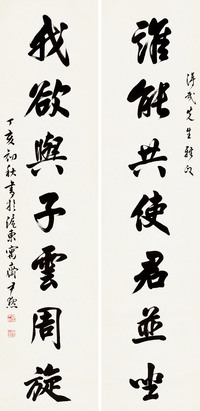 先生雅
誰能共使君並坐
我欲與子雲周旋
丁亥初秋書於滬東寓齋尹默